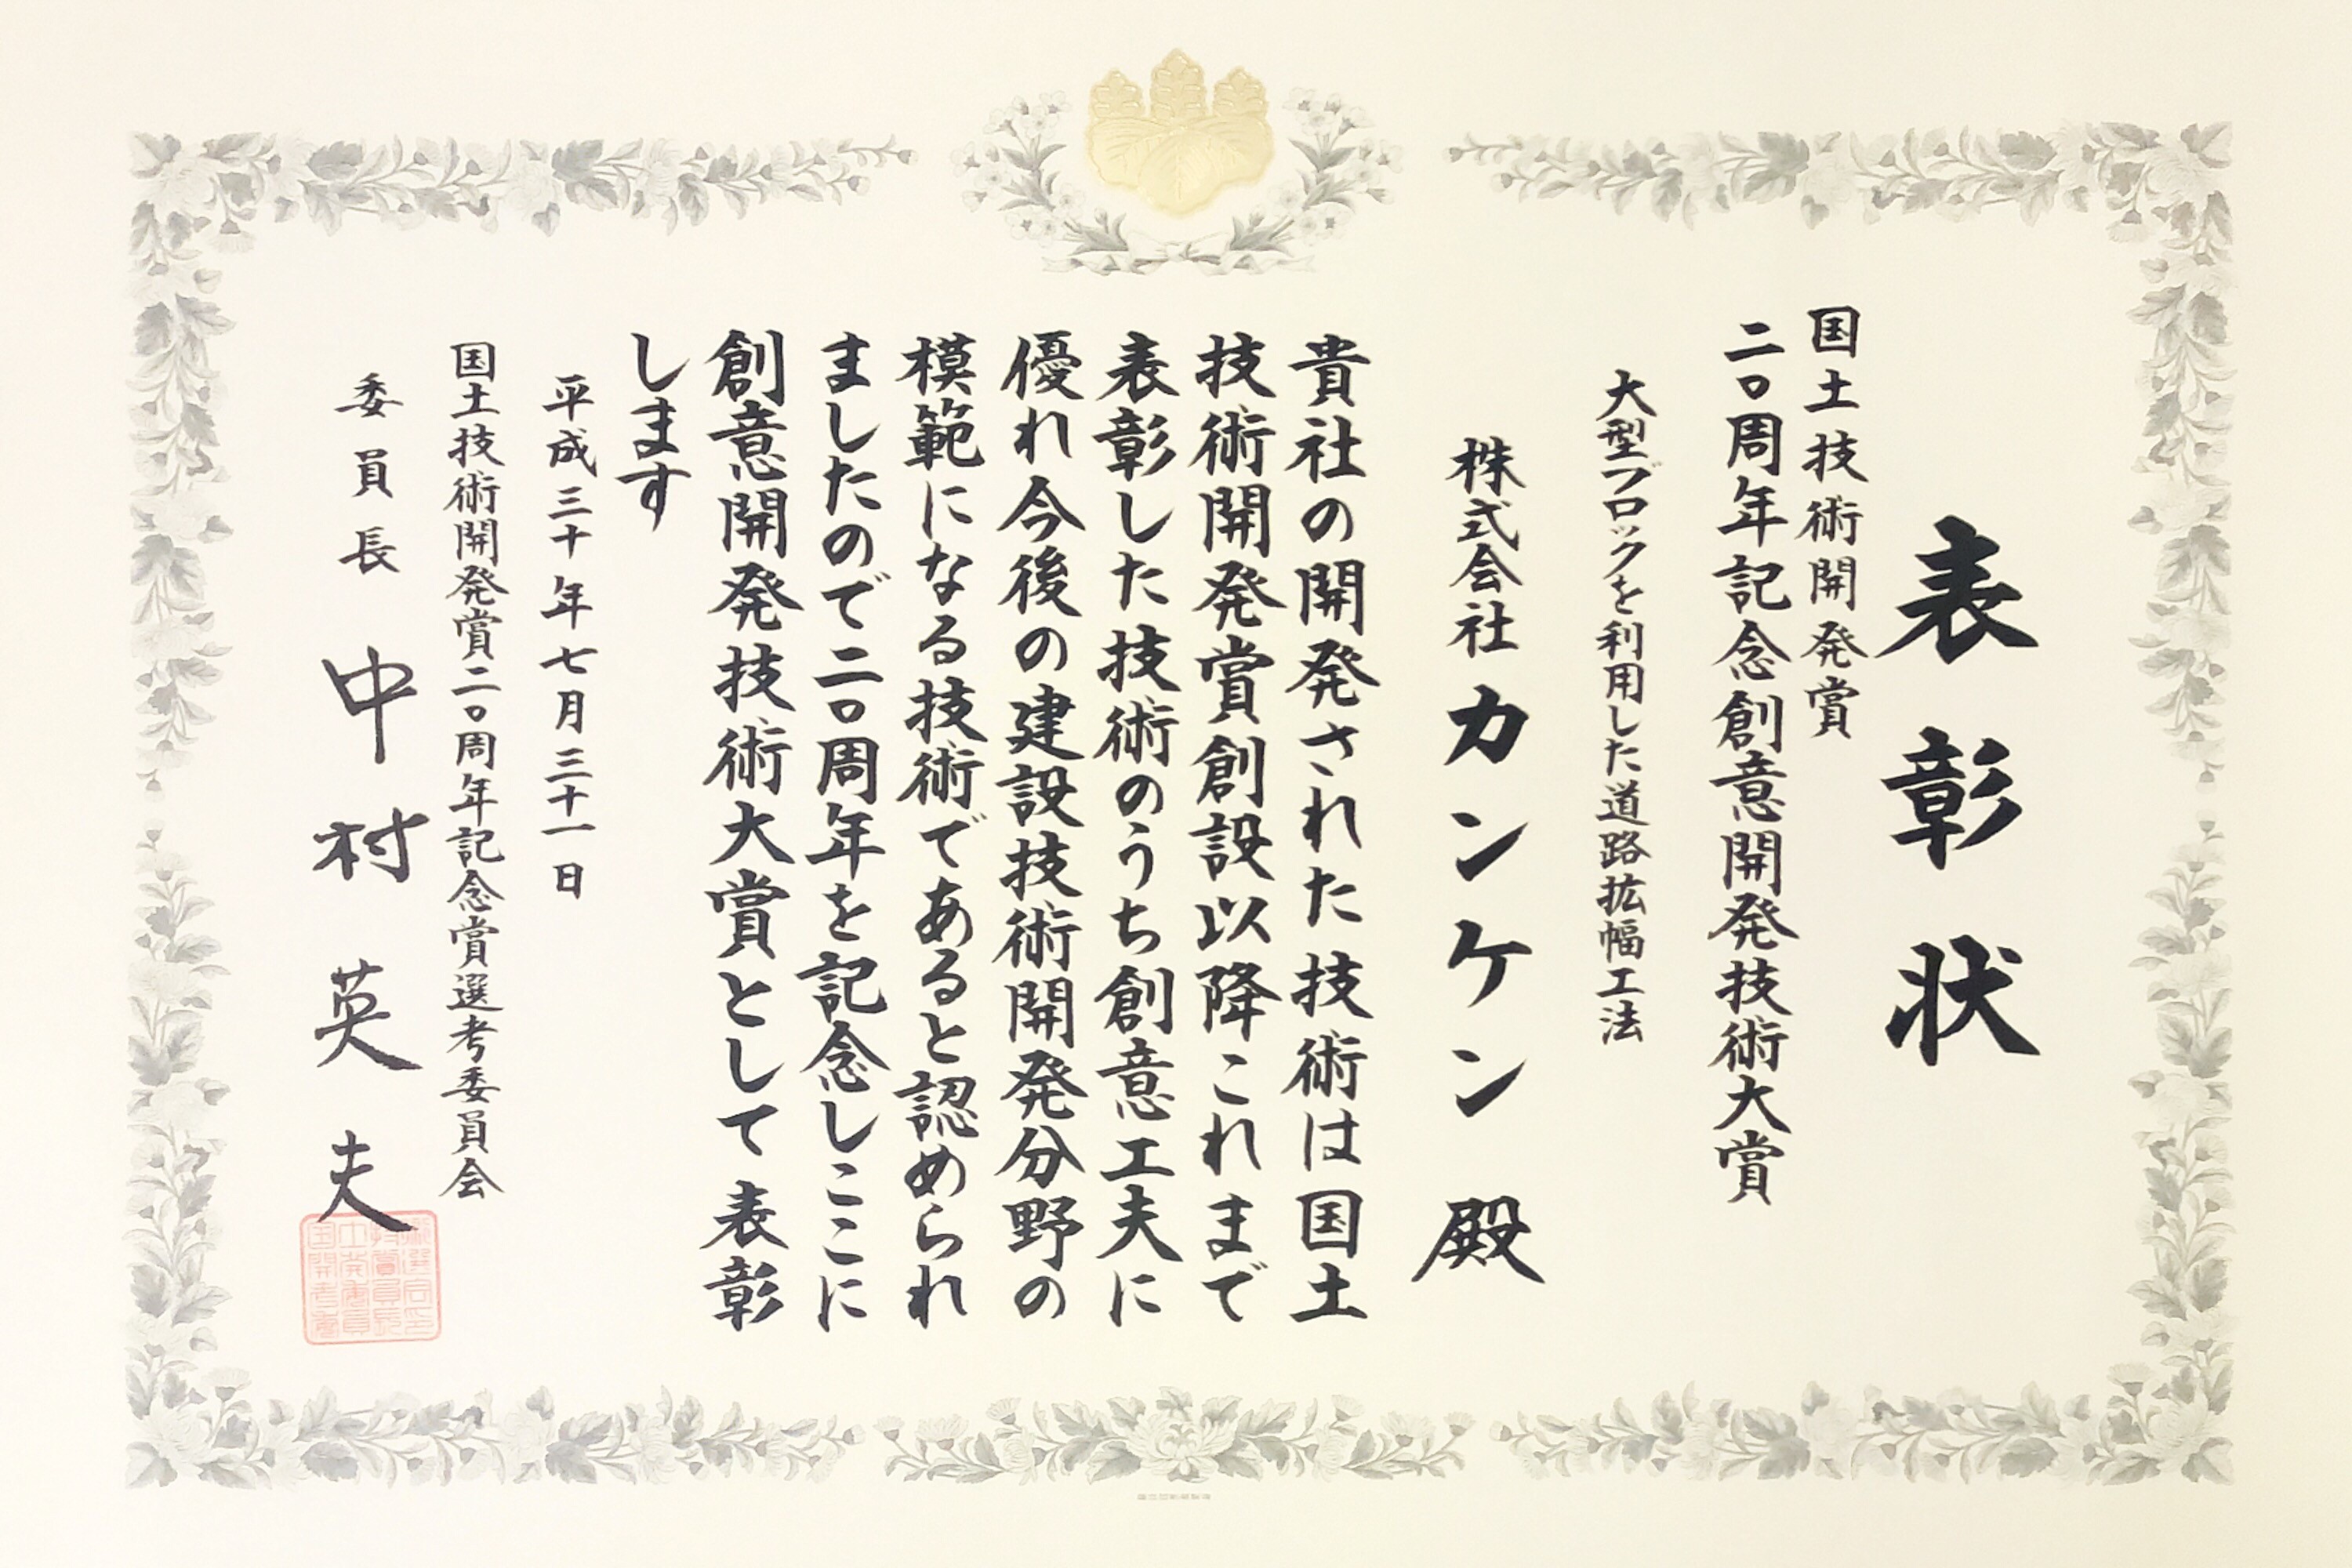 表彰状
国土技術開発賞
二〇周年記念創意開発技術大賞
大型ブロックを利用した道路拡幅工法
株式会社カンケン殿
貴社の開発された技術は国土
技術開発賞創設以降これまで
表彰した技術のうち創意工夫に
優れ今後の建設技術開発分野の
模範になる技術であると認められ
ましたので二〇周年を記念しここに
創意開発技術大賞として表彰
します
平成三十年七月三十一日
国土技術開発賞二〇周年記念賞選考委員会
委員長 中村英夫